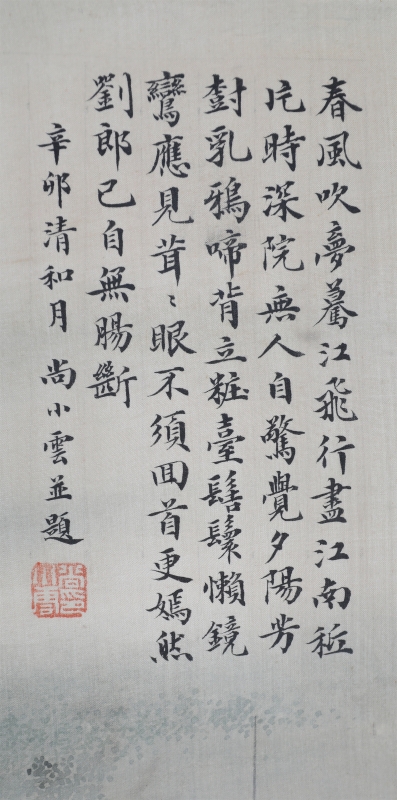 春風吹夢驀江飛行盡江南秪
片時深院無人自驚覺夕陽芳
樹乳鴉啼背立粧臺髻鬟懶鏡
鸞應見茸〻眼不須回首更嫣然
劉郎已自無腸斷
辛卯清和月 尚小雲並題
尚印小雲